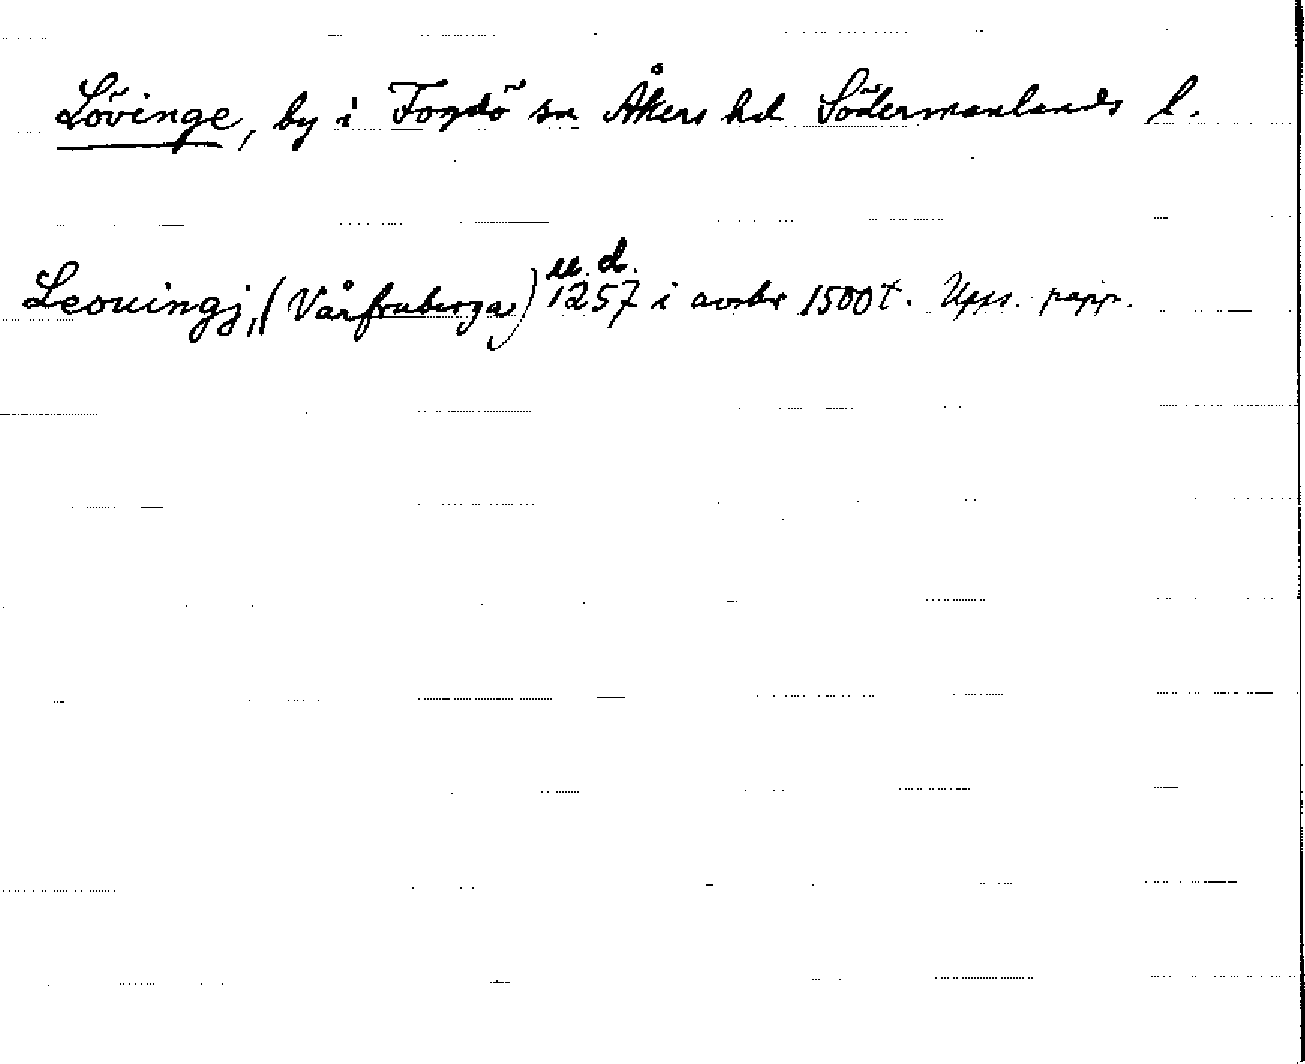 Lövinge, by i Fogdö sn Åkers hd Södermanlands l.
u. d.
Leouingj, (Vårfruberga) 1257 i avskr 1500t. Upps. papp.